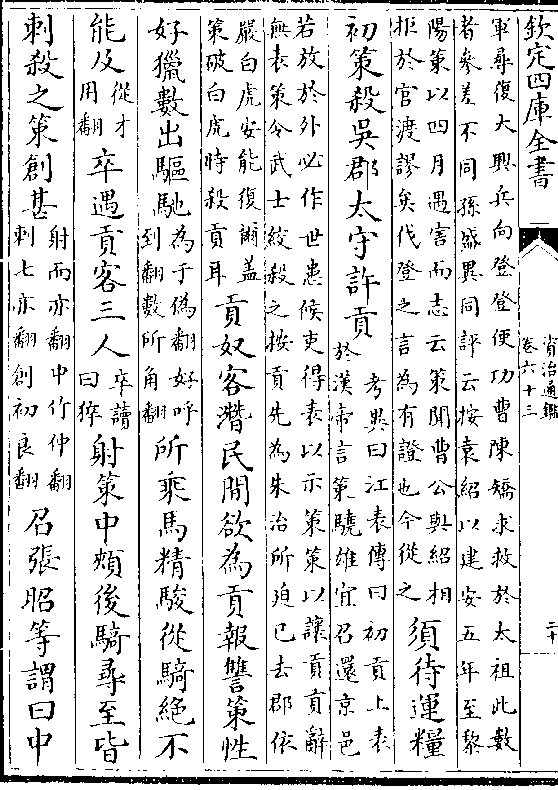 欽定四庫全書
資治通鑑
卷六十三
二十
軍尋復大興兵向登登便功曹陳矯求救於太祖此數
者參差不同孫盛異同評云按袁紹以建安五年至黎
陽策以四月遇害而志云策聞曹公與紹相
拒於官渡謬矣代登之言為有證也今從之
須待運糧
初策殺吳郡太守許貢
考異曰江表傳曰初貢上表
於漢帝言策驍雄宜召還京邑
若放於外必作世患候吏得表以示策策以讓貢貢辭
無表策令武士絞殺之按貢先為朱治所迫已去郡依
嚴白虎安能復爾盖
策破白虎時殺貢耳
貢奴客潛民間欲為貢報讐策性
好獵數出驅馳
為于偽翻好呼
到翻數所角翻
所乘馬精駿從騎絶不
能及
從才
用翻
卒遇貢客三人
卒讀
曰猝
射策中頰後騎尋至皆
刺殺之策創甚
射而亦翻中竹仲翻
刺七亦翻創初良翻
召張昭等謂曰中